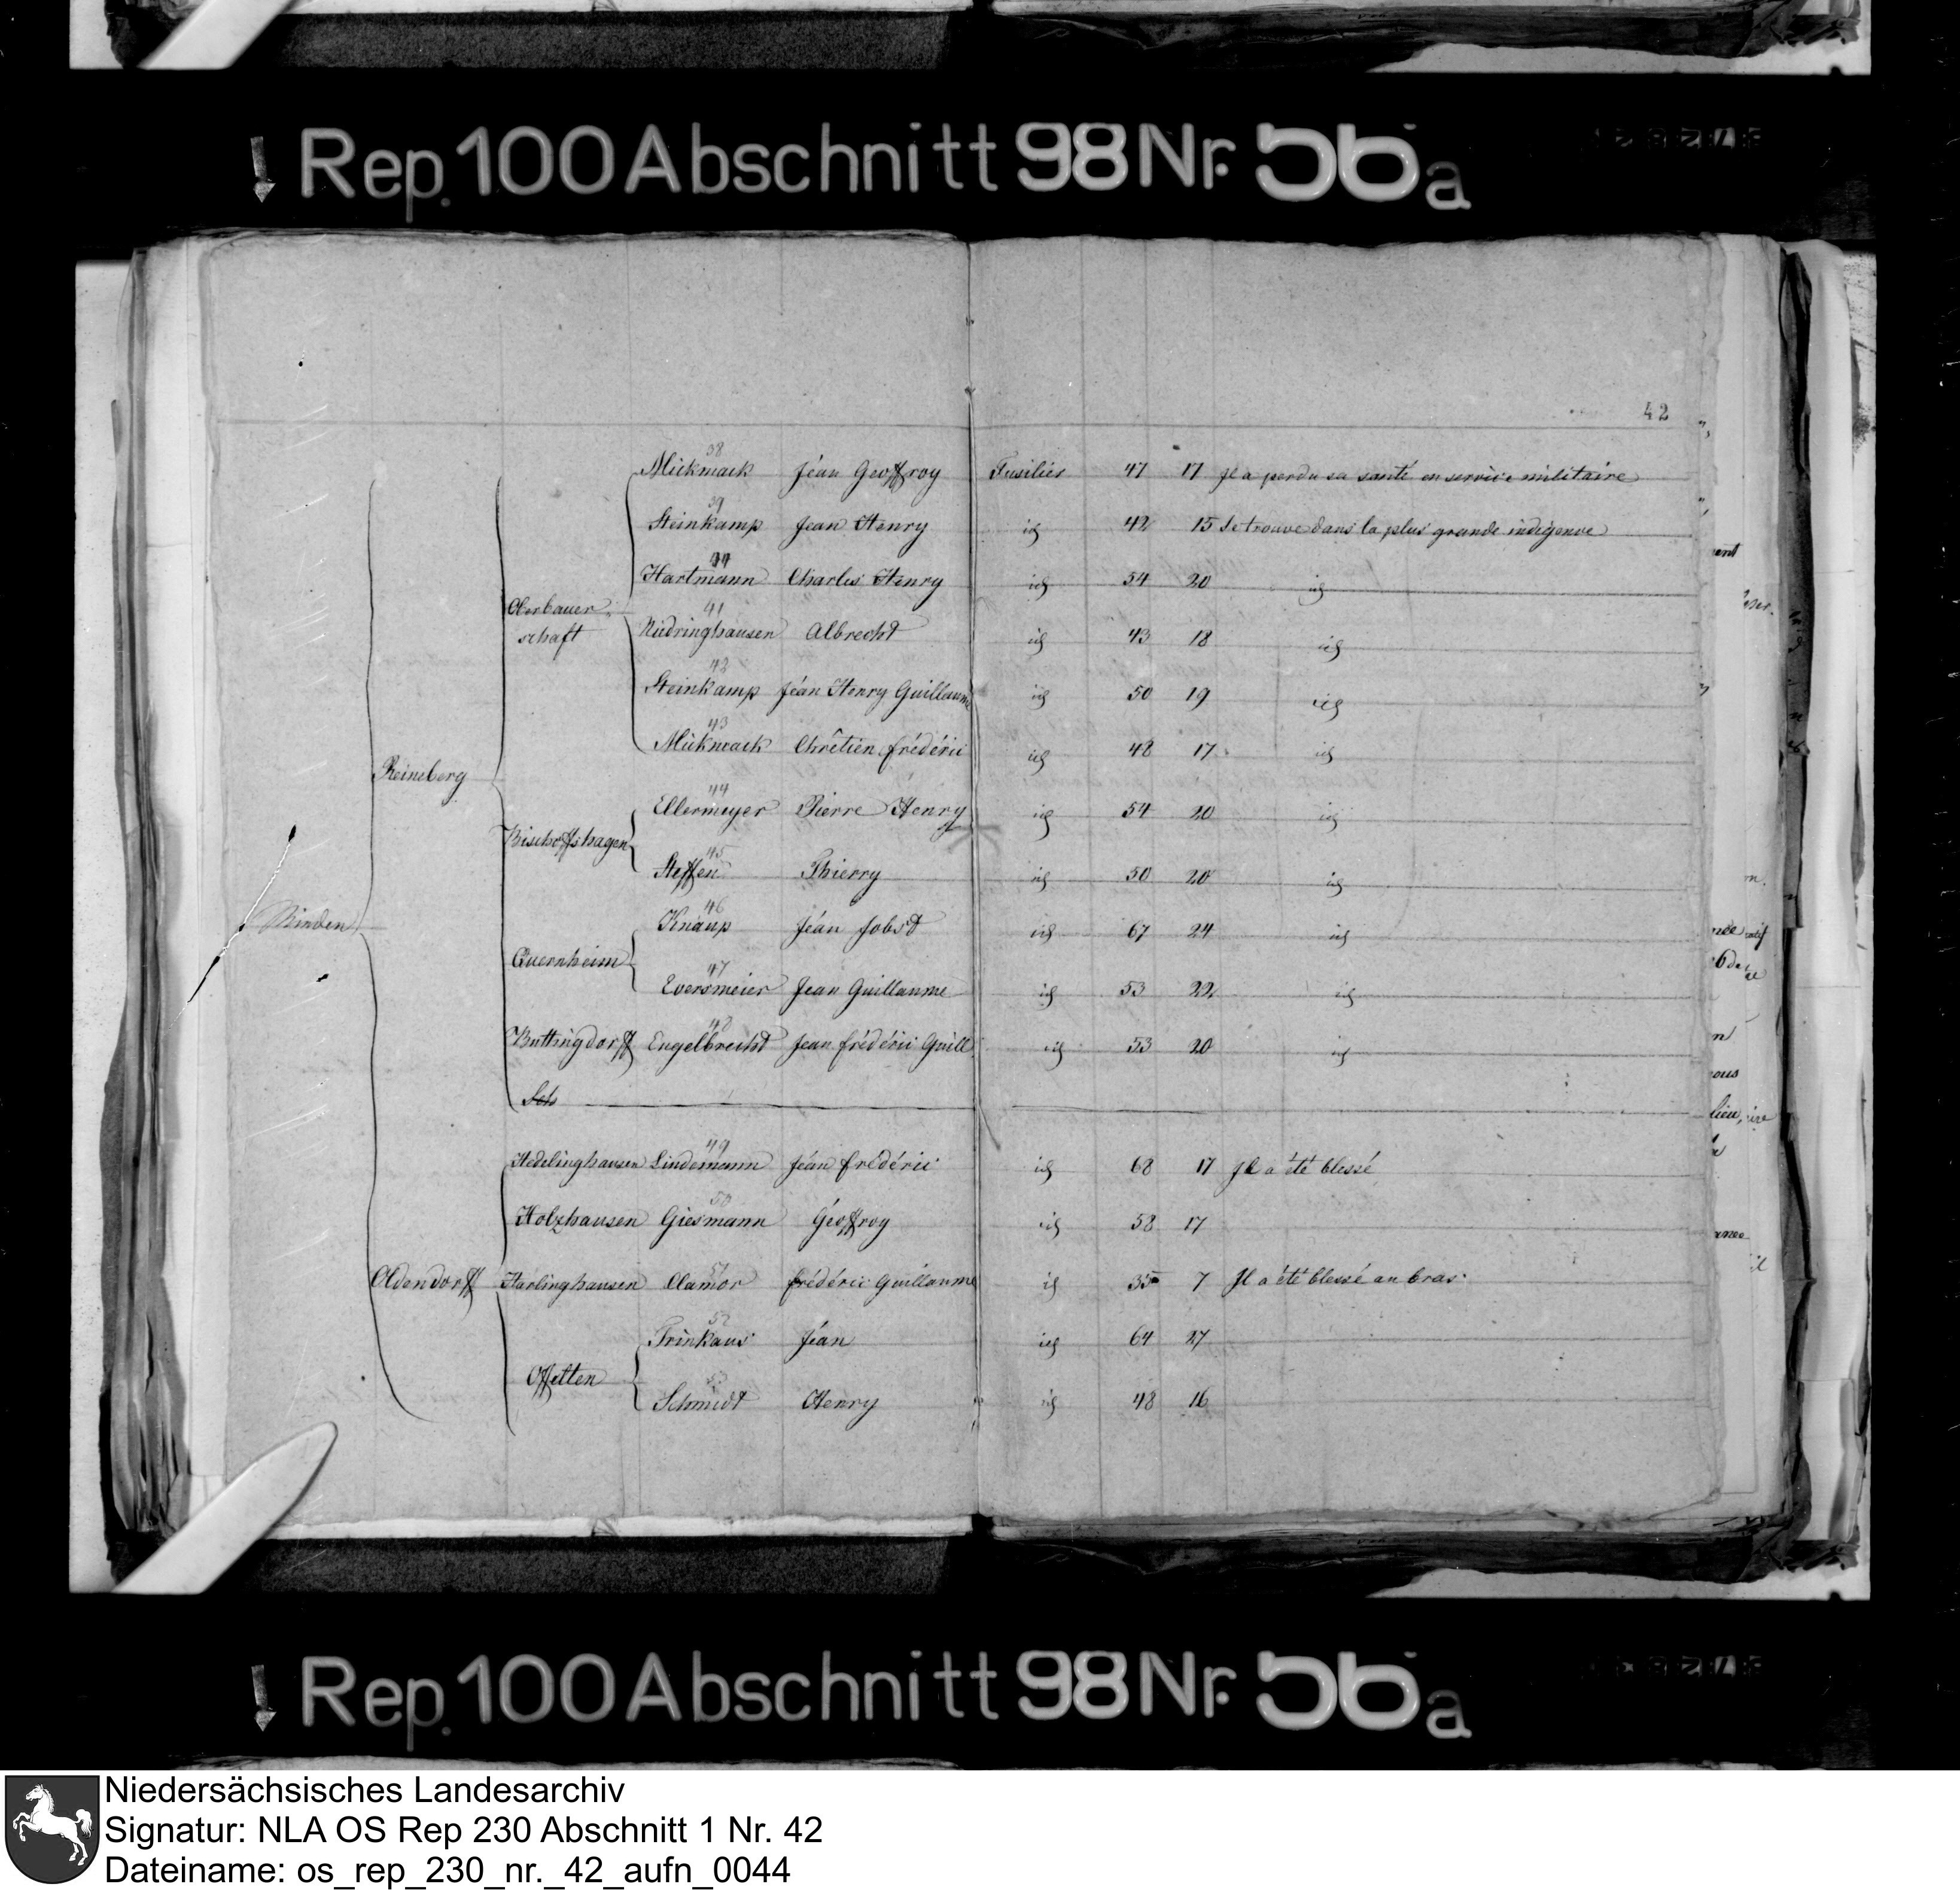 Rep. 100 Abschnitt 98 Nr. 56a
42
38
Mückmack Jéan Geoffroy Fusilier 47 17 Il a perdu sa santé en service militaire
39
Steinkamp Jean Henry id 42 15 Se trouve dans la plus grande indigence
Hartmann Charles Henry id 54 20 id
Oberbauer
schaft
41
Niedringhausen Albrecht id 43 18 id
42
Steinkamp Jéan Henry Guillaume id 50 19 id
43
Mückmack Chrêtien frédéric id 48 17 id
Reineberg
44
Ellermeyer Pierre Henry id 54 20 id
Bischoffshagen
45
Steffen Thierry id 50 20 id
Minden
46
Knaup Jéan Jobst id 67 24 id
Quernheim
47
Eversmeier Jean Guillaume id 53 22 id
48
Buttingdorff Engelbrecht Jean frédéric Guill id 53 20 id
Sch
49
Hedelinghausen Lindemann Jéan frédéric id 68 17 Il a été blessé
50
Holzhausen Giesmann Géoffroy id 58 17
51
Oldendorff Harlinghausen Clamor frédéric Guillaume id 35 7 Il a été blessé au bras.
52
Trinkaus Jéan id 64 27
Offelten
53
Schmidt Henry id 48 16
Rep. 100 Abschnitt 98 Nr. 56a
Niedersächsisches Landesarchiv
Signatur: NLA OS Rep 230 Abschnitt 1 Nr. 42
Dateiname: os_rep_230_nr._42_aufn_0044